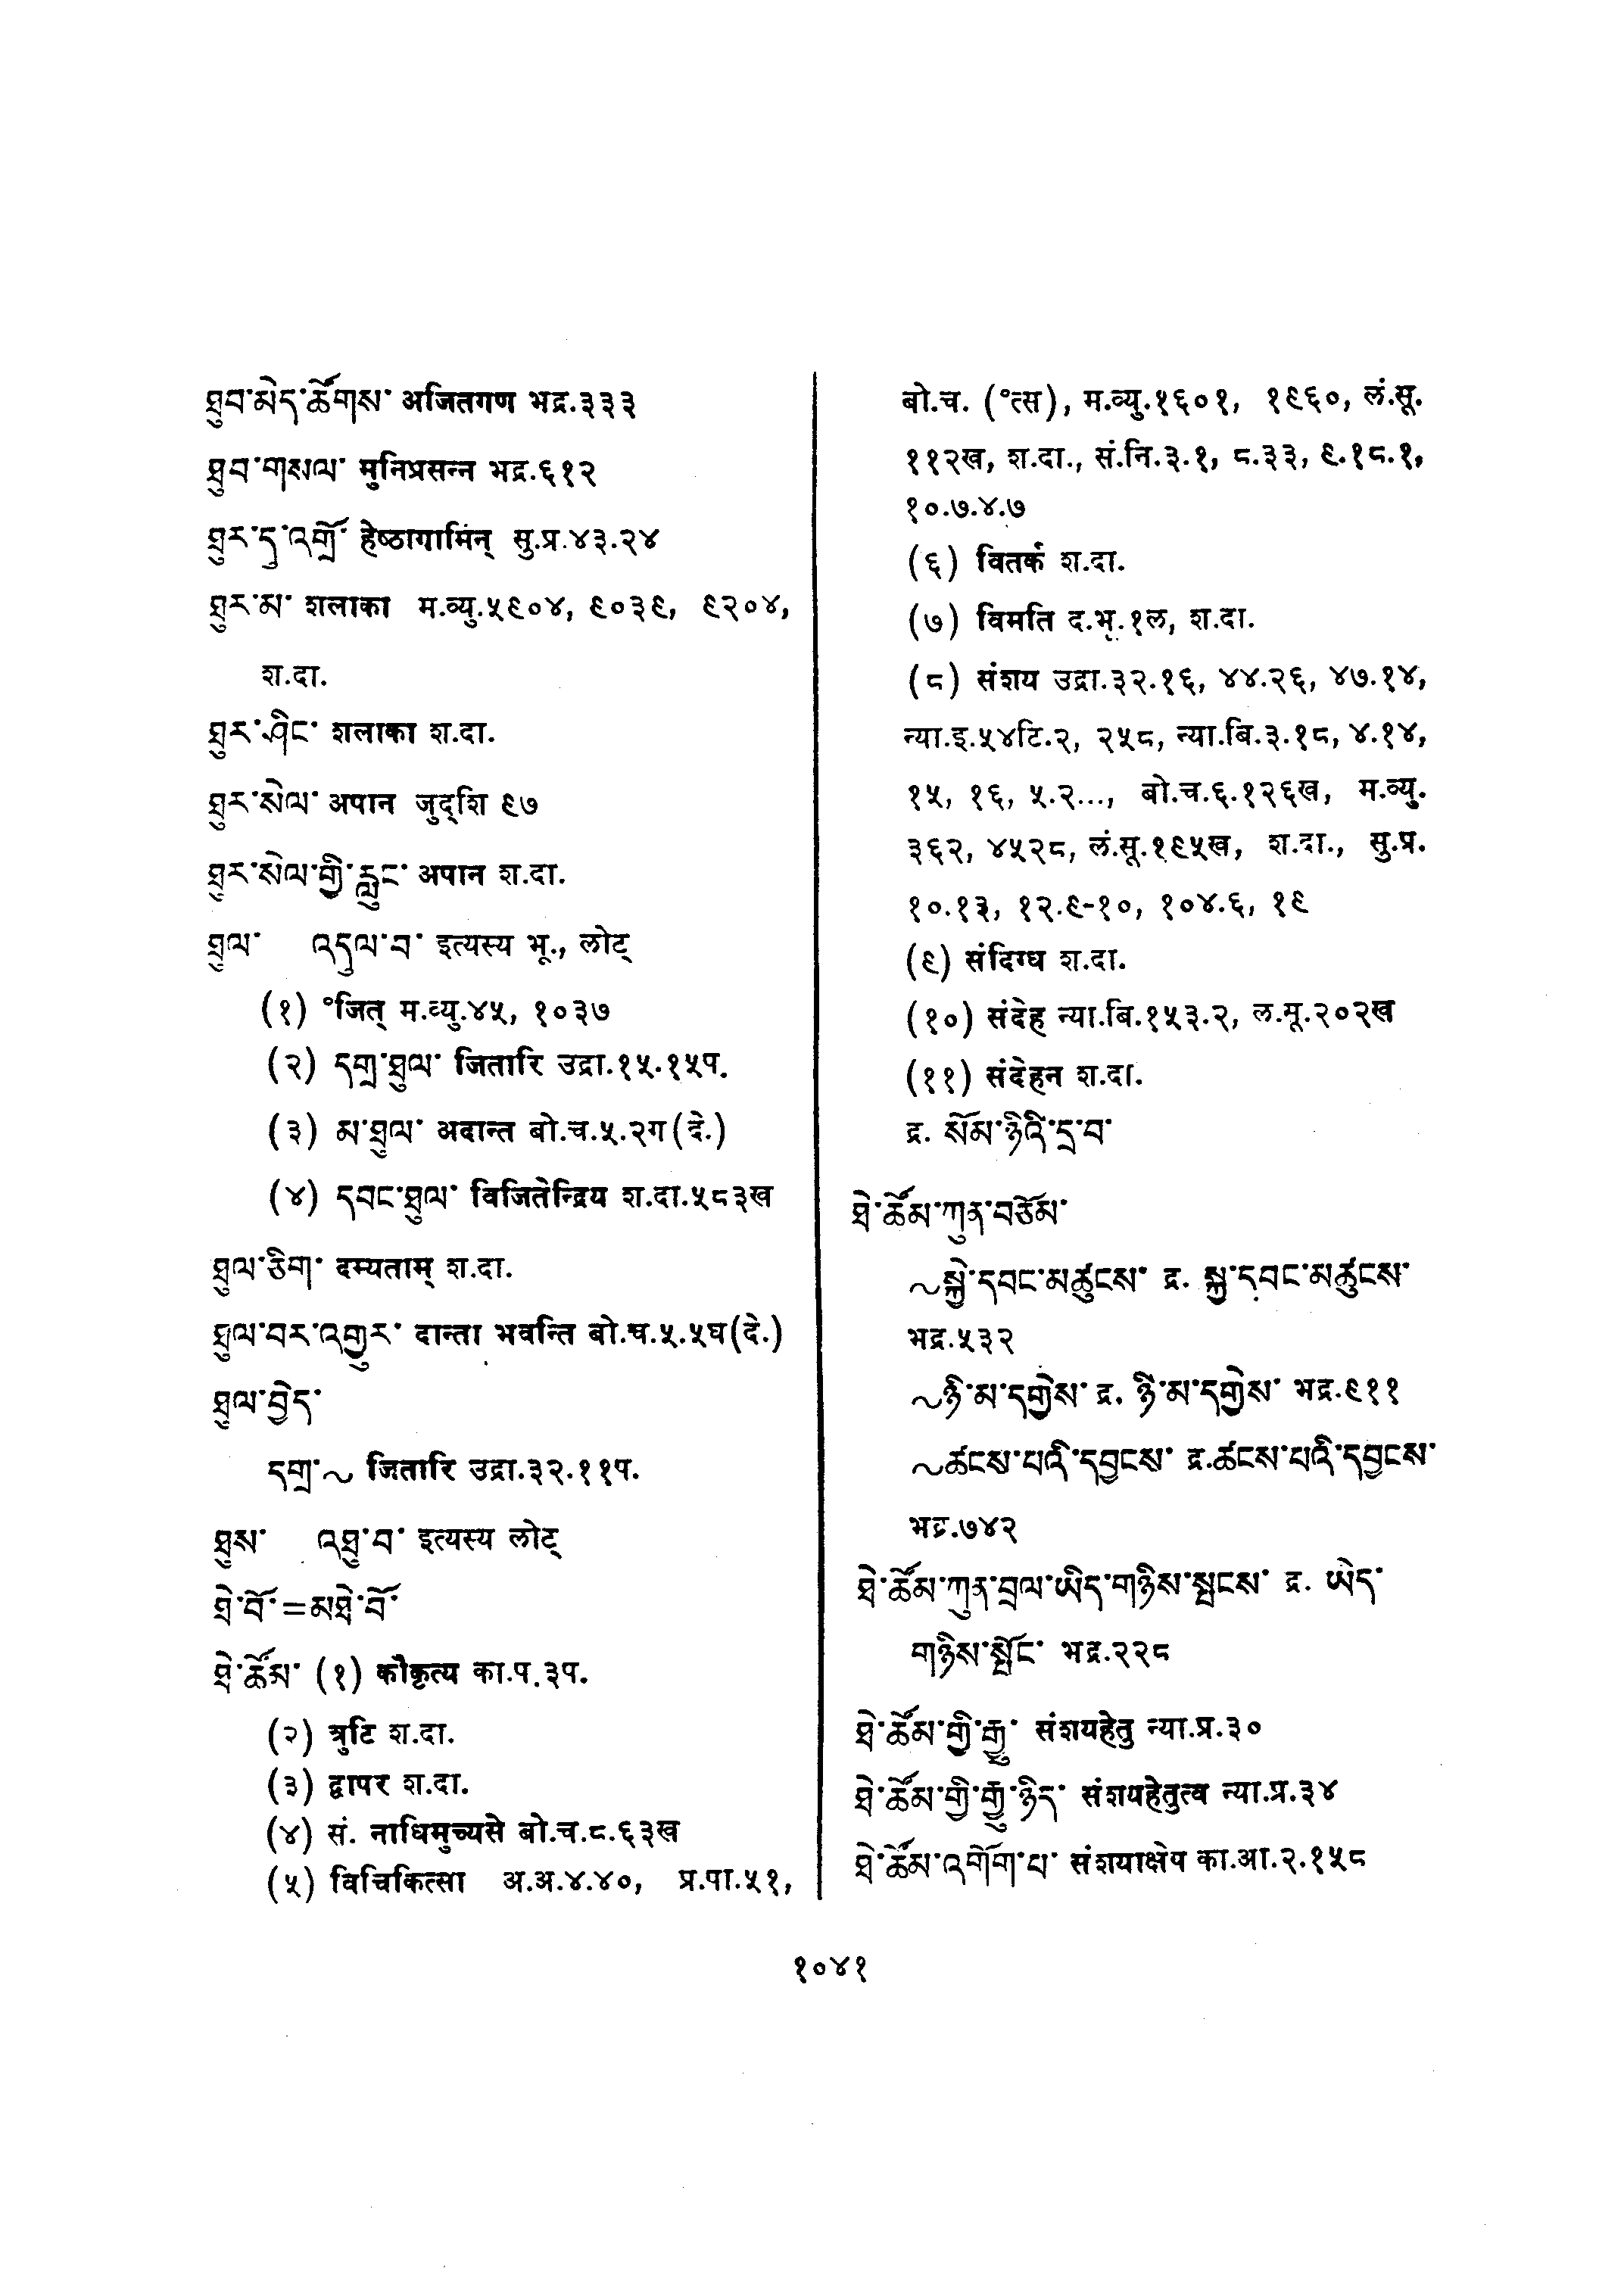 ཐུབ་མེད་ཚོགས་ अजितगण भद्र.३३३
ཐུབ་གསལ་ मुनिप्रसन्न भद्र.६१२
ཐུར་དུ་འགྲོ་ हेष्ठागामिन् सु.प्र.४३.२४
ཐུར་མ་ शलाका म.व्यु.५९०४, ९०३९, ९२०४,
श.दा.
ཐུར་ཤིང་ शलाका श.दा.
ཐུར་སེལ་ अपान जुद्शि ९७
ཐུར་སེལ་གྱི་རླུང་ अपान श.दा.
ཐུལ་ འདུལ་བ་ इत्यस्य भू., लोट्
(१) °जित् म.व्यु.४५, १०३७
(२) དགྲ་ཐུལ་ जितारि उद्रा.१५.१५प.
(३) མ་ཐུལ་ अदान्त बो.च.५.२ग(दे.)
(४) དབང་ཐུལ་ विजितेन्द्रिय श.दा.५८३ख
ཐུལ་ཅིག་ दम्यताम् श.दा.
ཐུལ་བར་འགྱུར་ दान्ता भवन्ति बो.च.५.५घ(दे.)
ཐུལ་བྱེད་
དགྲ་~ जितारि उद्रा.३२.११प.
ཐུས་ འཐུ་བ་ इत्यस्य लोट्
ཐེ་བོ་=མཐེ་བོ་
ཐེ་ཚོམ་ (१) कौकृत्य का.प.३प.
(२) त्रुटि श.दा.
(३) द्वापर श.दा.
(४) सं. नाधिमुच्यसे बो.च.८.६३ख
(५) विचिकित्सा अ.अ.४.४०, प्र.पा.५१,
बो.च. (°त्स), म.व्यु.१६०१, १९६०, लं.सू.
११२ख, श.दा., सं.नि.३.१, ८.३३, ९.१८.१,
१०.७.४.७
(६) वितर्क श.दा.
(७) विमति द.भू.१ल, श.दा.
(८) संशय उद्रा.३२.१६, ४४.२६, ४७.१४,
न्या.इ.५४टि.२, २५८, न्या.बि.३.१८, ४.१४,
१५, १६, ५.२..., बो.च.६.१२६ख, म.व्यु.
३६२, ४५२८, लं.सू.१९५ख, श.दा., सु.प्र.
१०.१३, १२.९-१०, १०४.६, १९
(९) संदिग्ध श.दा.
(१०) संदेह न्या.बि.१५३.२, ल.मू.२०२ख
(११) संदेहन श.दा.
द्र. སོམ་ཉིའི་དྲ་བ་
ཐེ་ཚོམ་ཀུན་བཅོམ་
~སྐྱེ་དབང་མཚུངས་ द्र. སྐྱ་དབང་མཚུངས་
भद्र.५३२
~ཉི་མ་དགྱེས་ द्र. ཉི་མ་དགྱེས་ भद्र.९११
~ཚངས་པའི་དབྱངས་ द्र.ཚངས་པའི་དབྱངས་
भद्र.७४२
ཐེ་ཚོམ་ཀུན་བྲལ་ཡིད་གཉིས་སྤངས་ द्र. ཡེད་
གཉིས་སྤོང་ भद्र.२२८
ཐེ་ཚོམ་གྱི་རྒྱུ་ संशयहेतु न्या.प्र.३०
ཐེ་ཚོམ་གྱི་རྒྱུ་ཉིད་ संशयहेतुत्व न्या.प्र.३४
ཐེ་ཚོམ་འགོག་པ་ संशयाक्षेप का.आ.२.१५८
१०४१